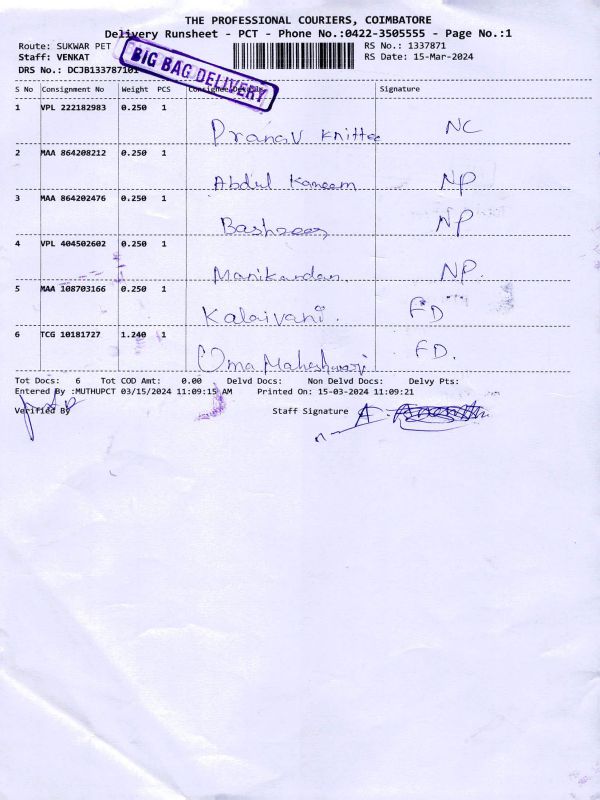 THE PROFESSIONAL COURIERS, COIMBATORE
Delivery Runsheet - PCT - Phone No.:0422-3505555 - Page No.:1
Route: SUKWAR PET
RS No.: 1337871
Staff: VENKAT
RS Date: 15-Mar-2024
DRS No.: DCJB133787101
BIG BAG DELIVERY
S No Consignment No Weight PCS Consignee Details Signature
1 VPL 222182983 0.250 1
Pranav Knittee NC
2 MAA 864208212 0.250 1
Abdul Kareem NP
3 MAA 864202476 0.250 1
Basheer NP
4 VPL 404502602 0.250 1
Manikandan. NP.
5 MAA 108703166 0.250 1
Kalaivani. FD
6 TCG 10181727 1.240 1
Uma Maheshwari FD.
Tot Docs: 6 Tot COD Amt: 0.00 Delvd Docs: Non Delvd Docs: Delvy Pts:
Entered By :MUTHUPCT 03/15/2024 11:09:15 AM Printed On: 15-03-2024 11:09:21
Verified By Staff Signature